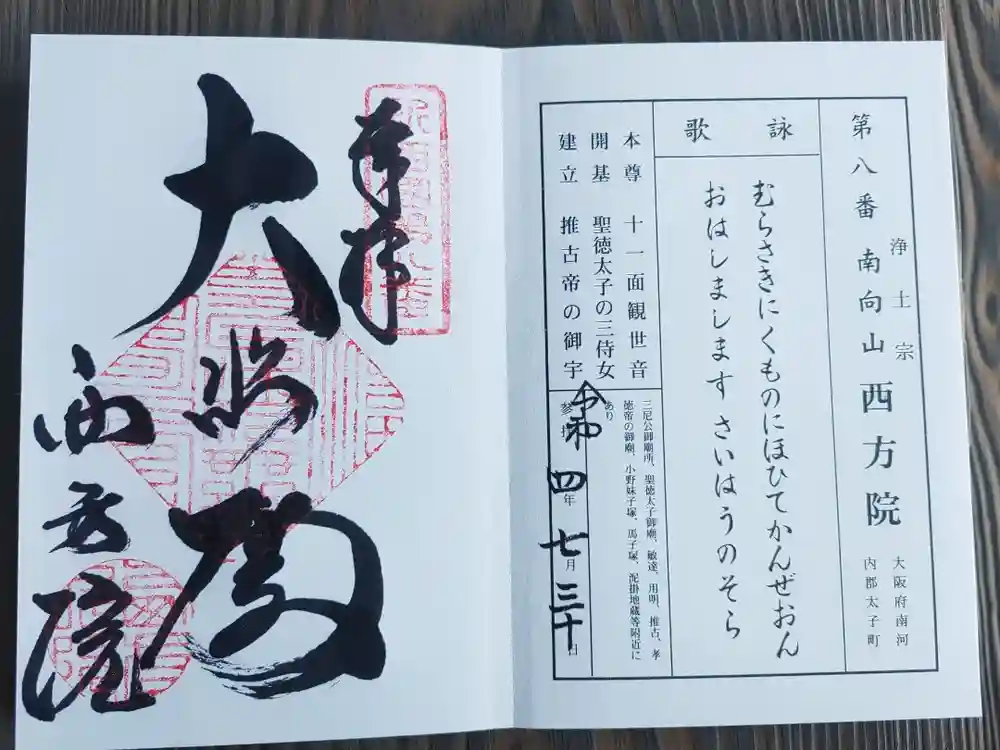 第八番 南向山 西方院
浄土宗
大阪府南河
内郡太子町
詠歌
むらさきにくものにほひてかんぜおん
おはしまします さいはうのそら
本尊 十一面観世音
開基 聖徳太子の三侍女
建立 推古帝の御宇
三尼公御廟所、聖徳太子御廟、敏達、用明、推古、孝
徳帝の御廟、小野妹子塚、馬子塚、泥掛地蔵等附近に
あり
令和四年七月三十日
奉拝
大悲殿
西方院